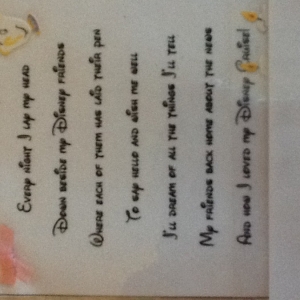 Every night I lay my head
Down beside my Disney friends
Where each of them has laid their pen
To say hello and wish me well
I'll dream of all the things I'll tell
My friends back home about the news
And how I loved my Disney Cruise!